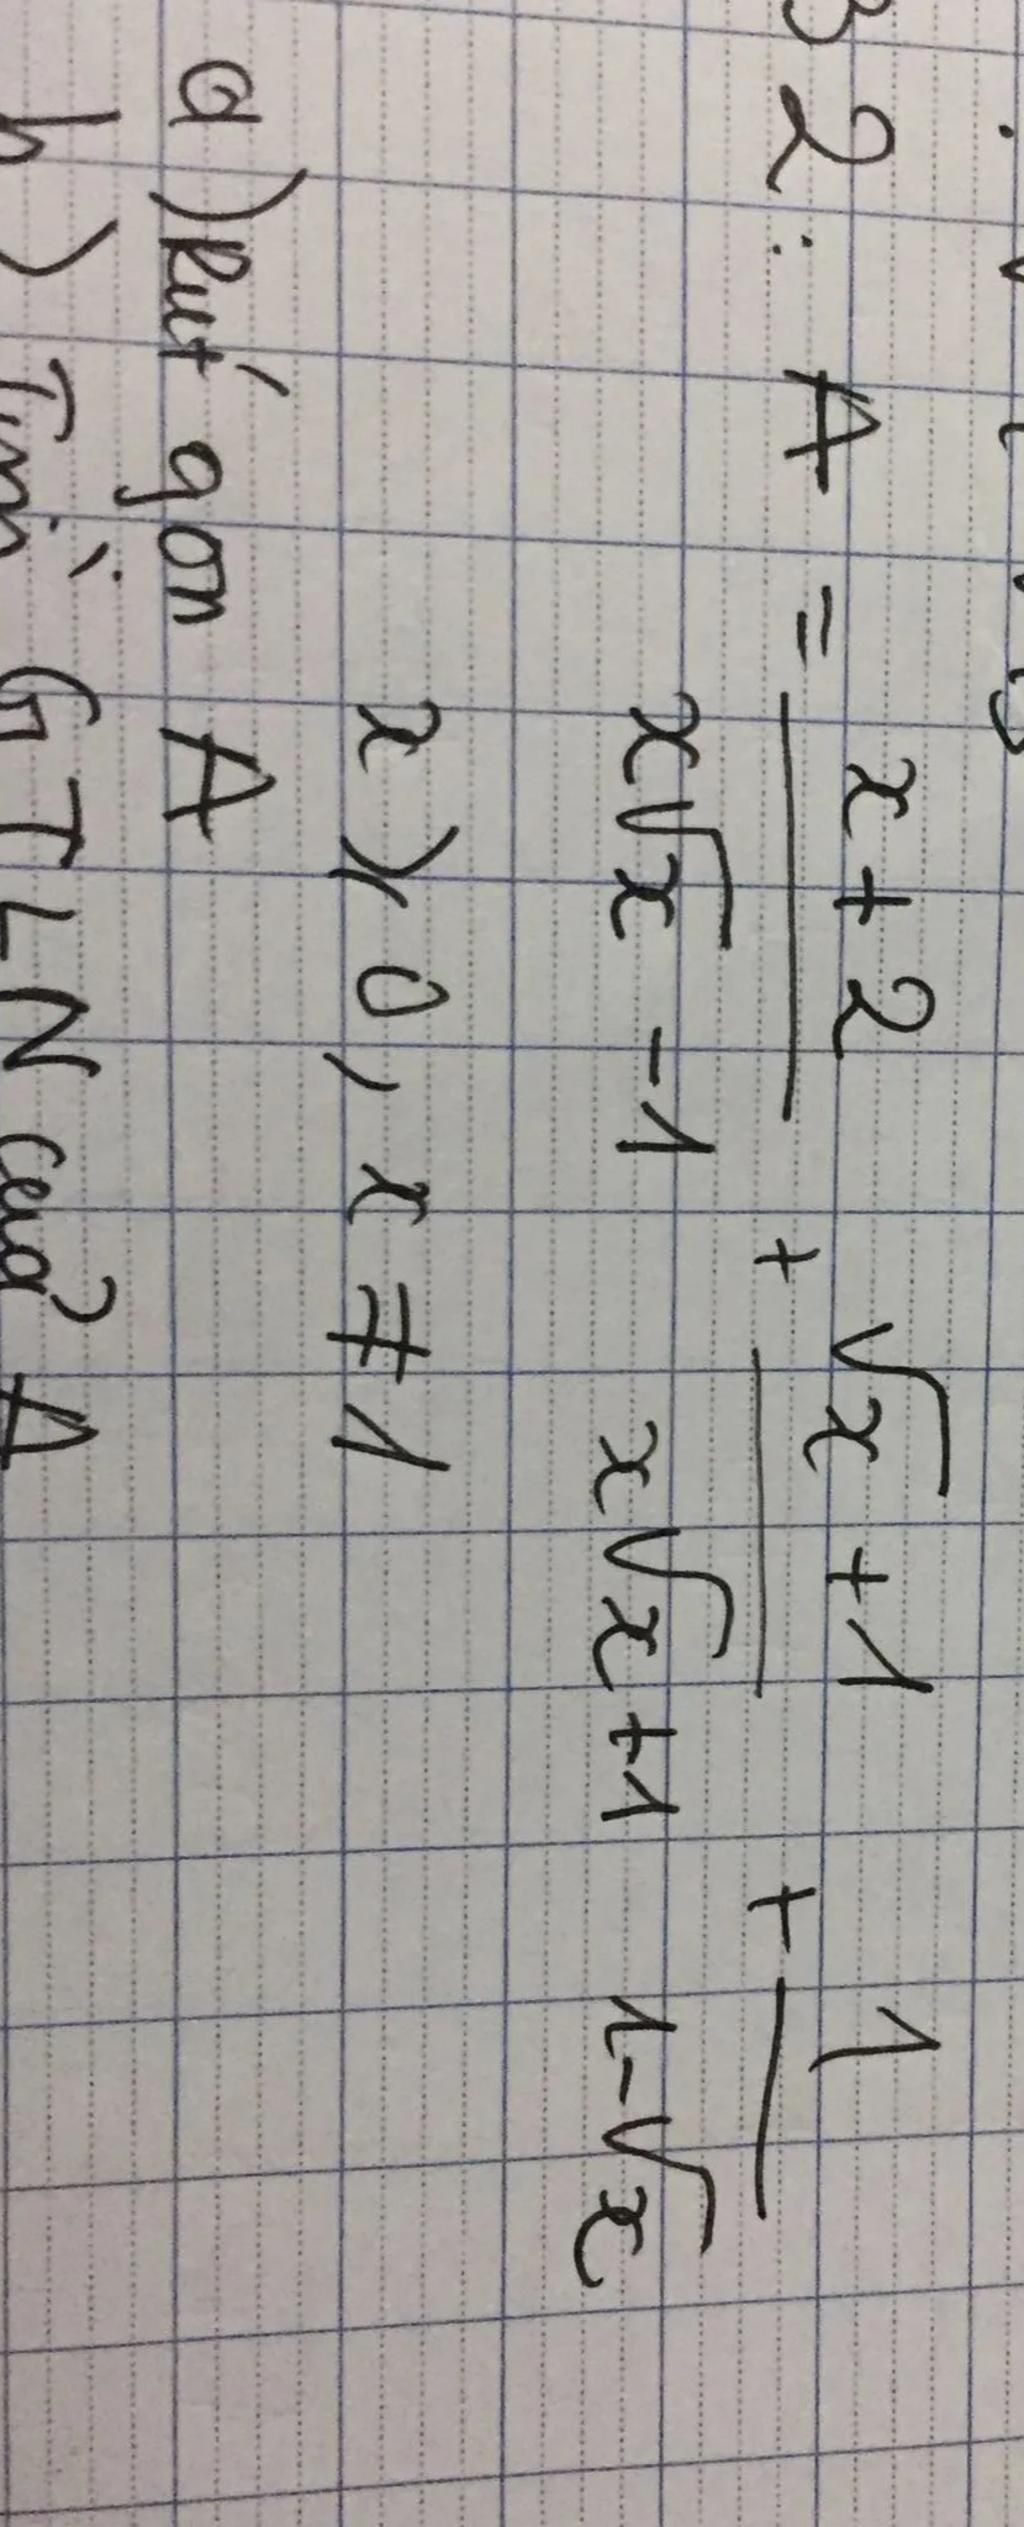 B 2: A = \frac{x+2}{x\sqrt{x}-1} + \frac{\sqrt{x}+1}{x\sqrt{x}+1} + \frac{1}{1-\sqrt{x}}
x ≥ 0, x ≠ 1
a) Rút gọn A
b) Tìm GTLN của A